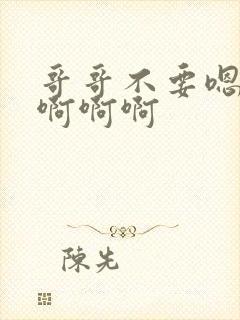 哥哥不要嗯
啊啊啊
陳先